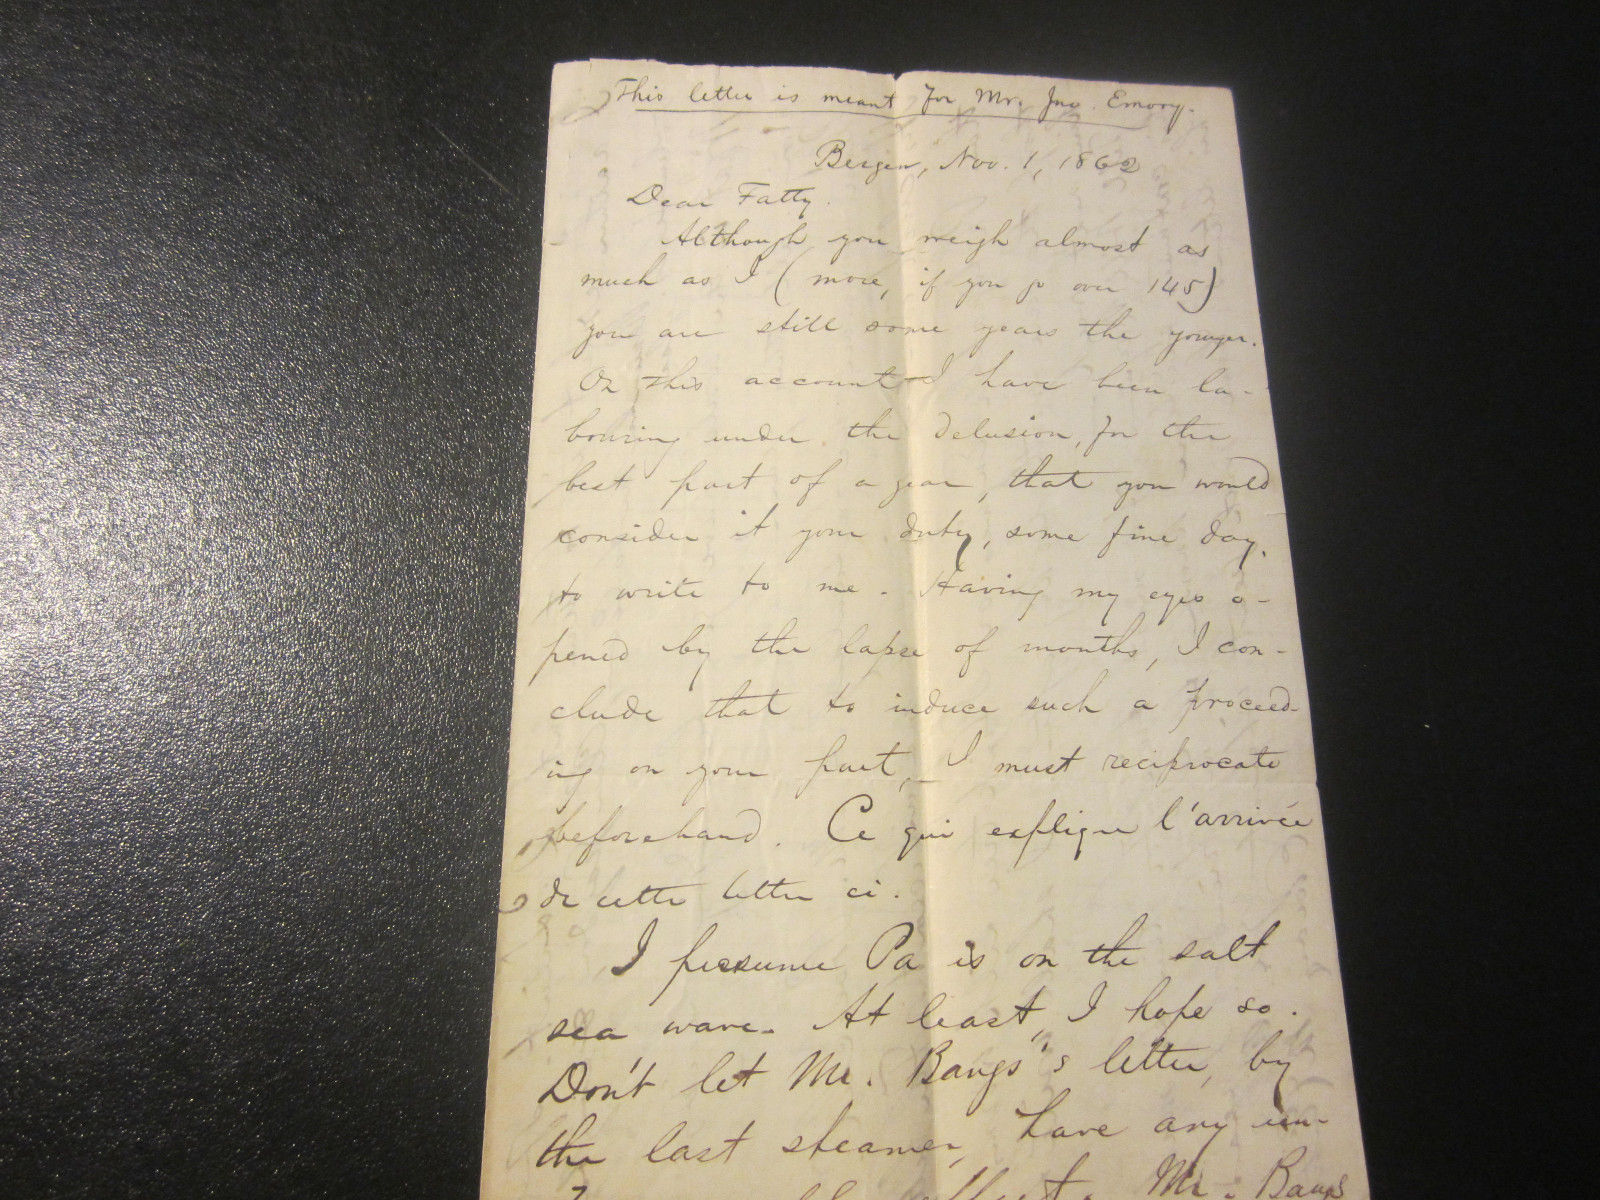 This letter is meant for Mr. Jno. Emory.
Bergen, Nov. 1, 1862
Dear Fatty.
Although you weigh almost as
much as I (more, if you go over 145)
you are still some years the younger.
On this account I have been la-
bouring under the delusion, for the
best part of a year, that you would
consider it your duty, some fine day,
to write to me. Having my eyes o-
pened by the lapse of months, I con-
clude that to induce such a proceed-
ing on your part, I must reciprocate
beforehand. Ce qui explique l'arrivée
de cette lettre ci.
I presume Pa is on the salt
sea wave. At least, I hope so.
Don't let Mr. Bangs's letter, by
the last steamer, have any un-
Mr. Bangs